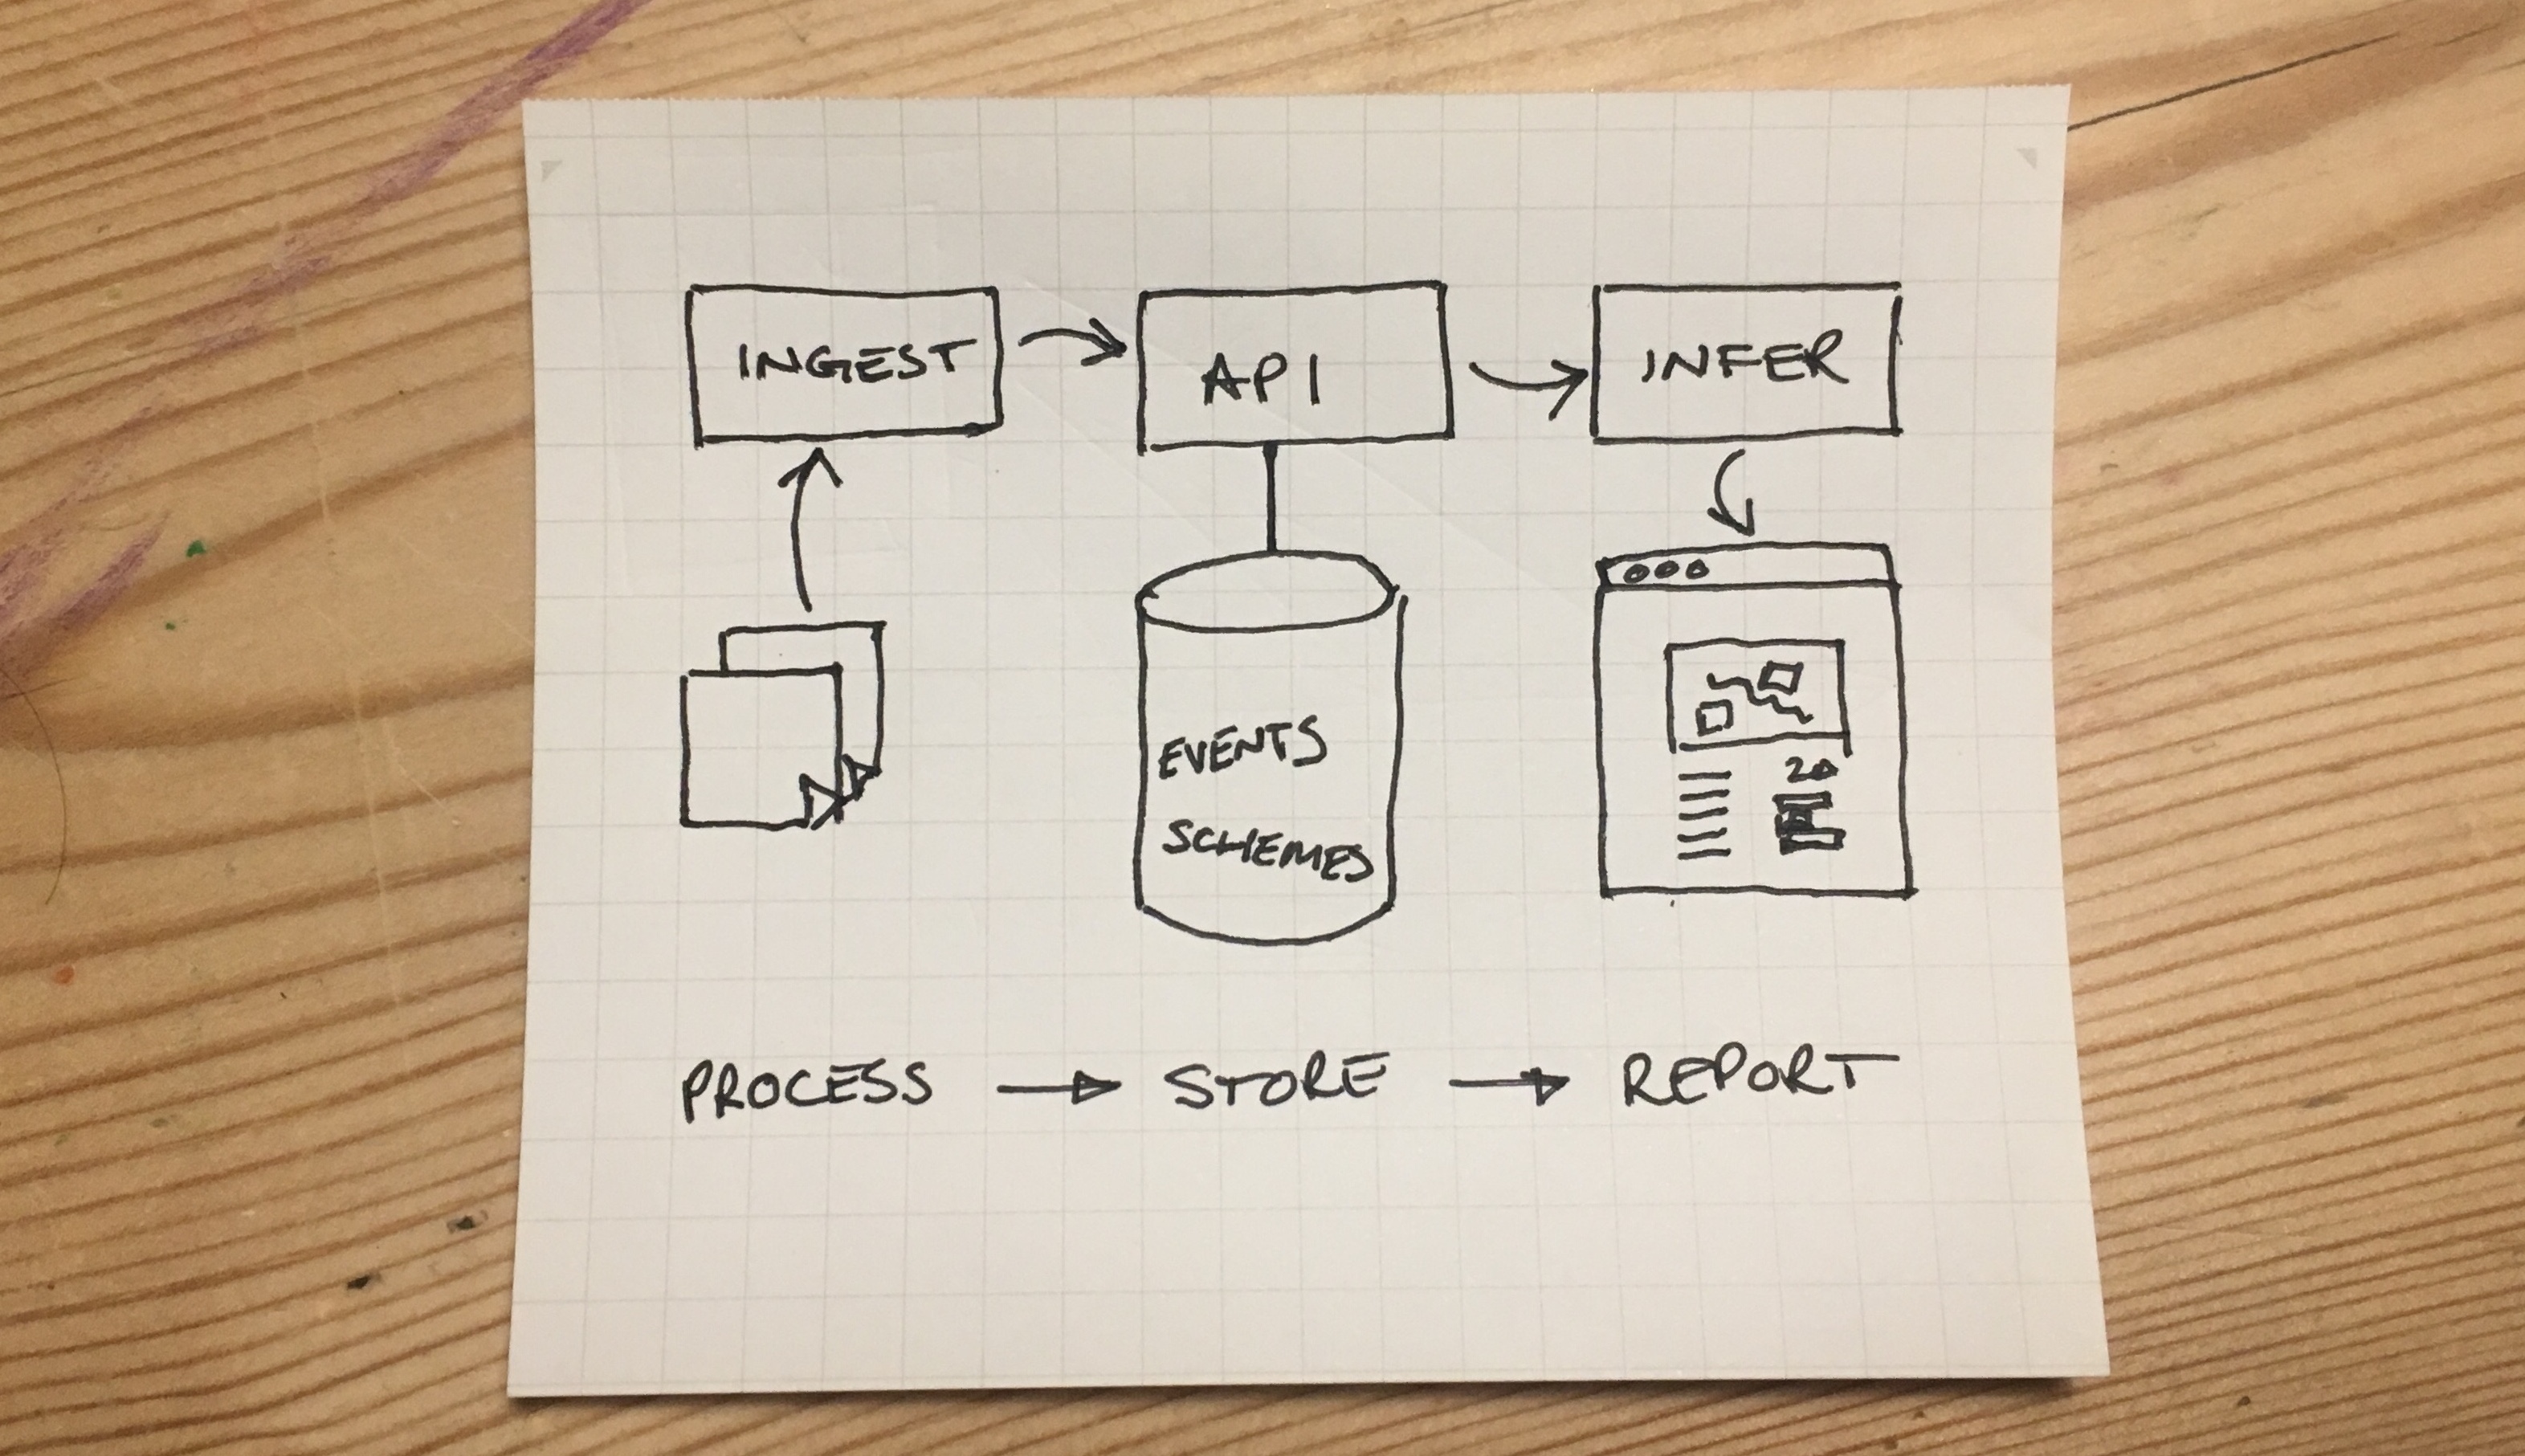 INGEST
API
INFER
EVENTS
SCHEMES
PROCESS → STORE → REPORT